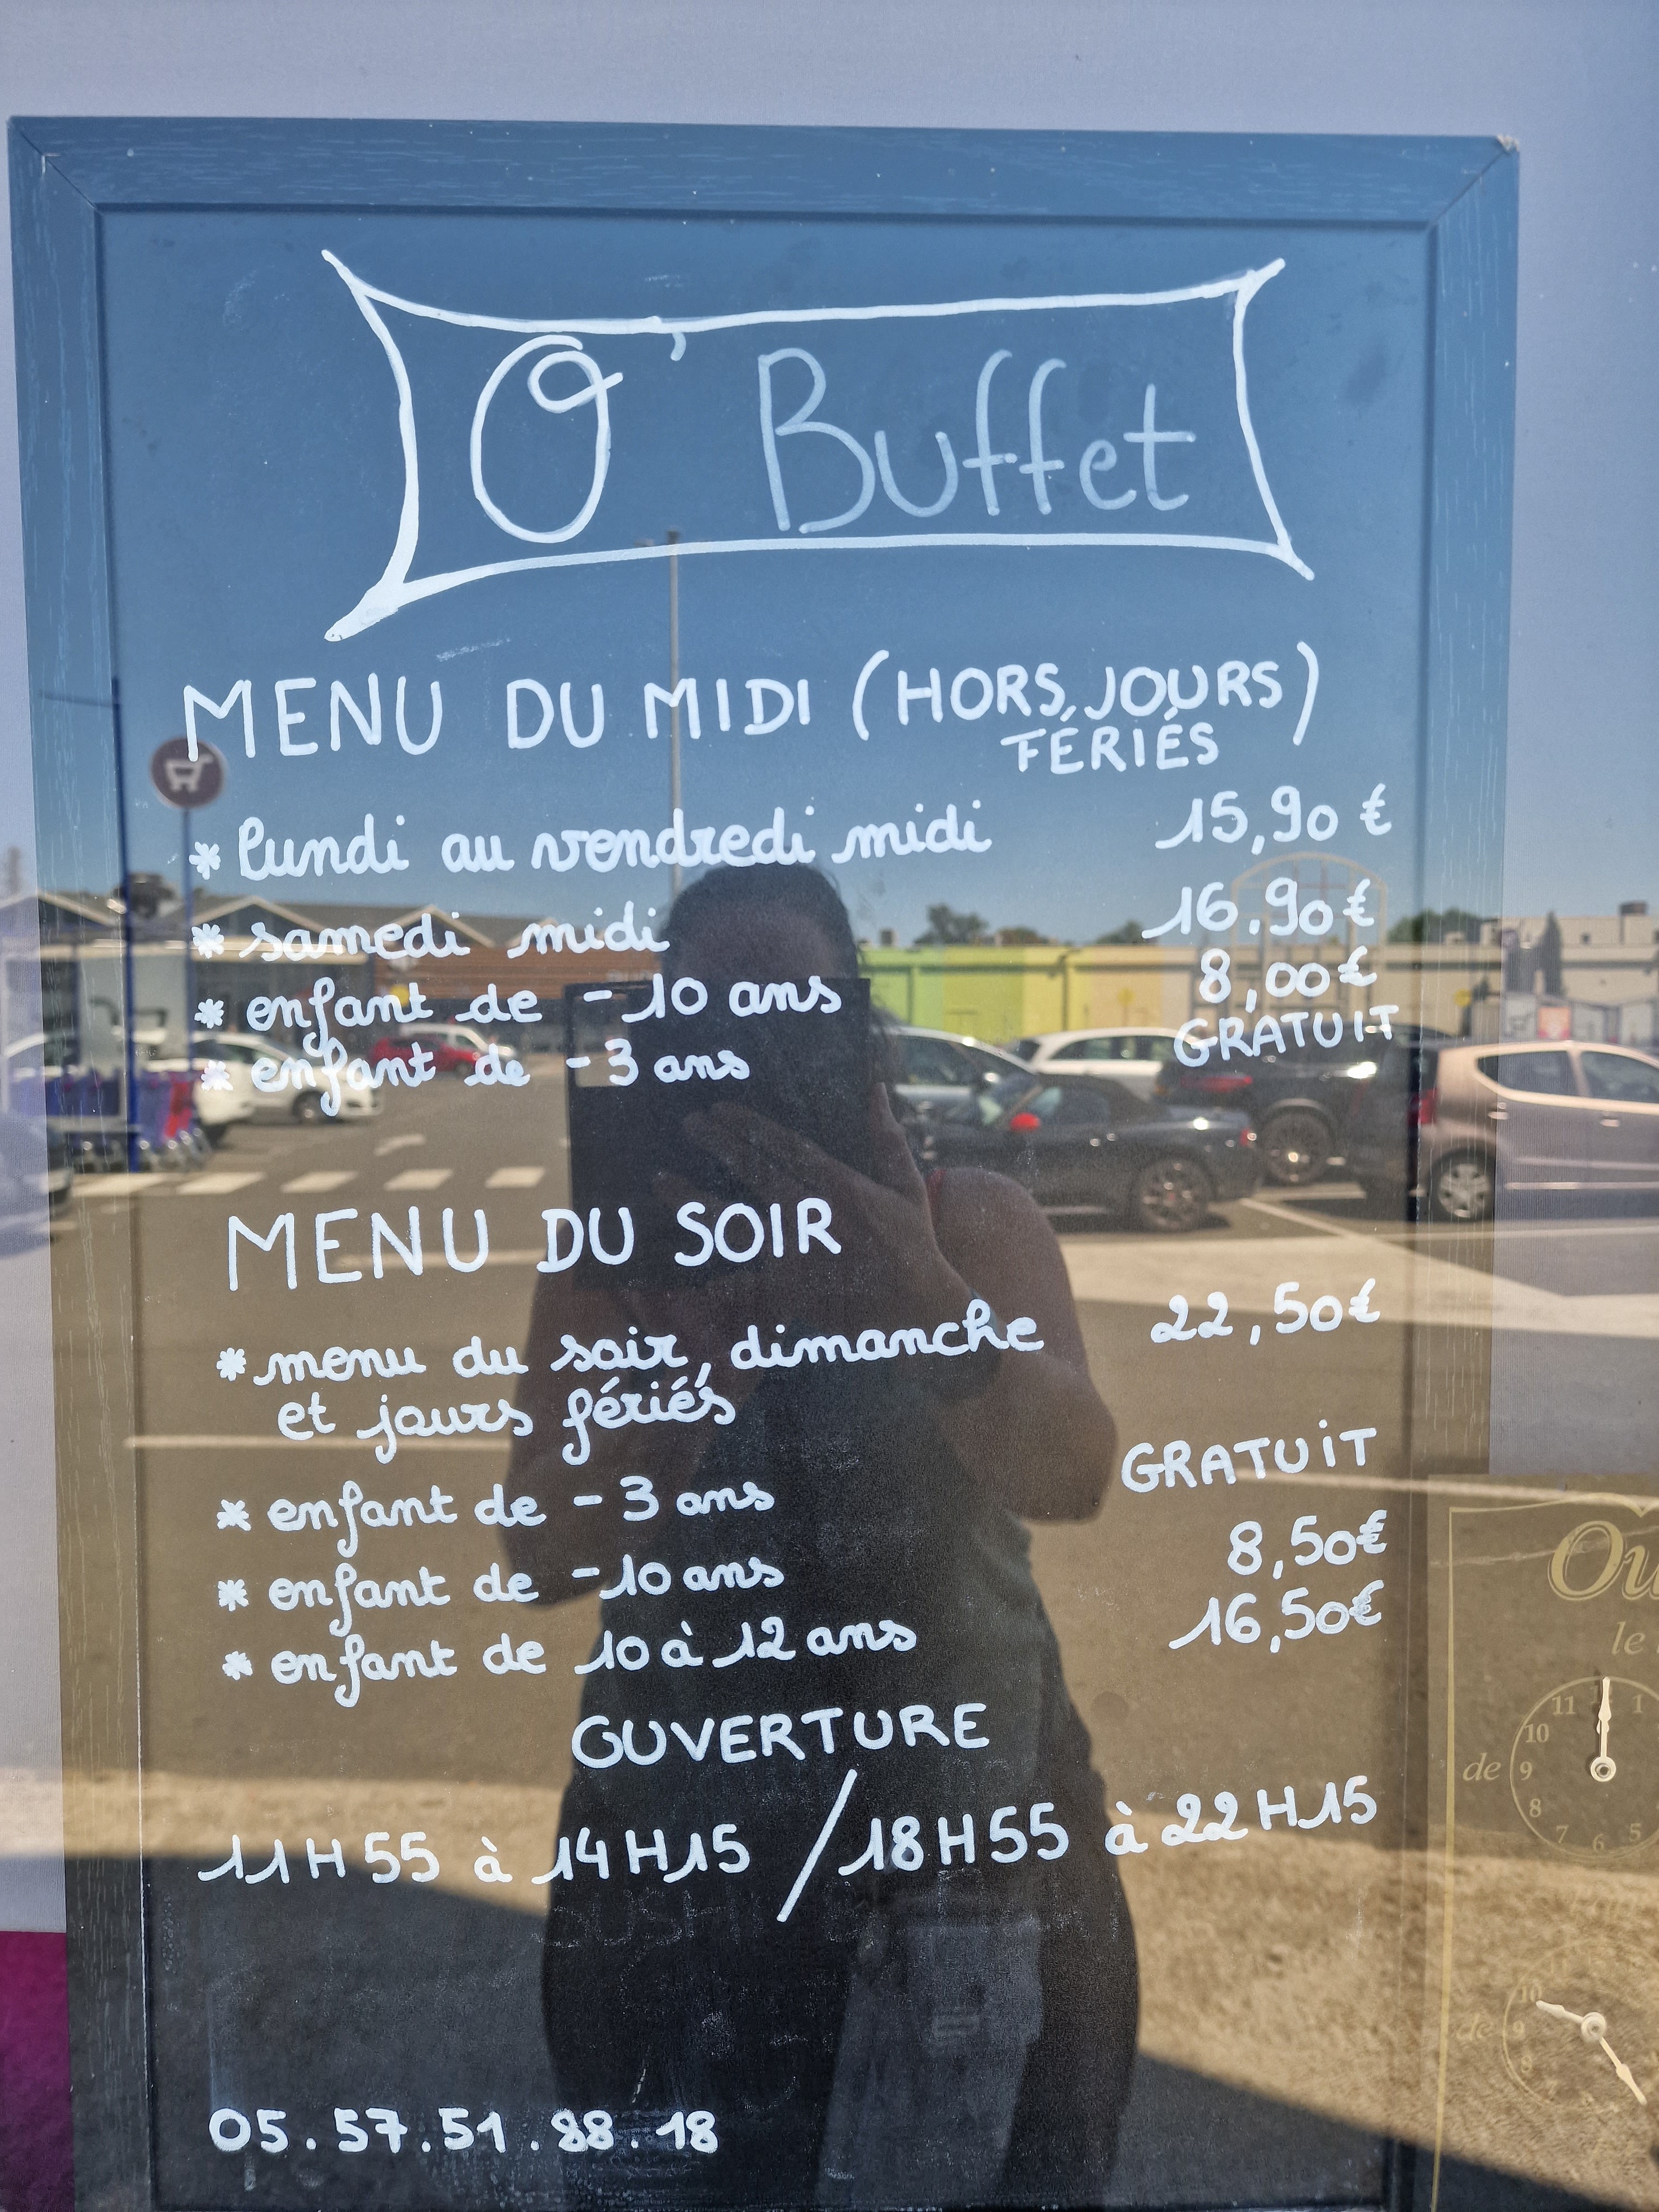 O' Buffet
MENU DU MIDI (HORS JOURS FÉRIÉS)
* lundi au vendredi midi 15,90 €
* samedi midi 16,90€
* enfant de - 10 ans 8,00€
* enfant de - 3 ans GRATUIT
MENU DU SOIR
* menu du soir, dimanche 22,50€
et jours fériés
* enfant de - 3 ans GRATUIT
* enfant de - 10 ans 8,50€
* enfant de 10 à 12 ans 16,50€
OUVERTURE
11H55 à 14H15 / 18H55 à 22H15
05.57.51.88.18
le
de
11 1
10
9
8
7 6 5
de